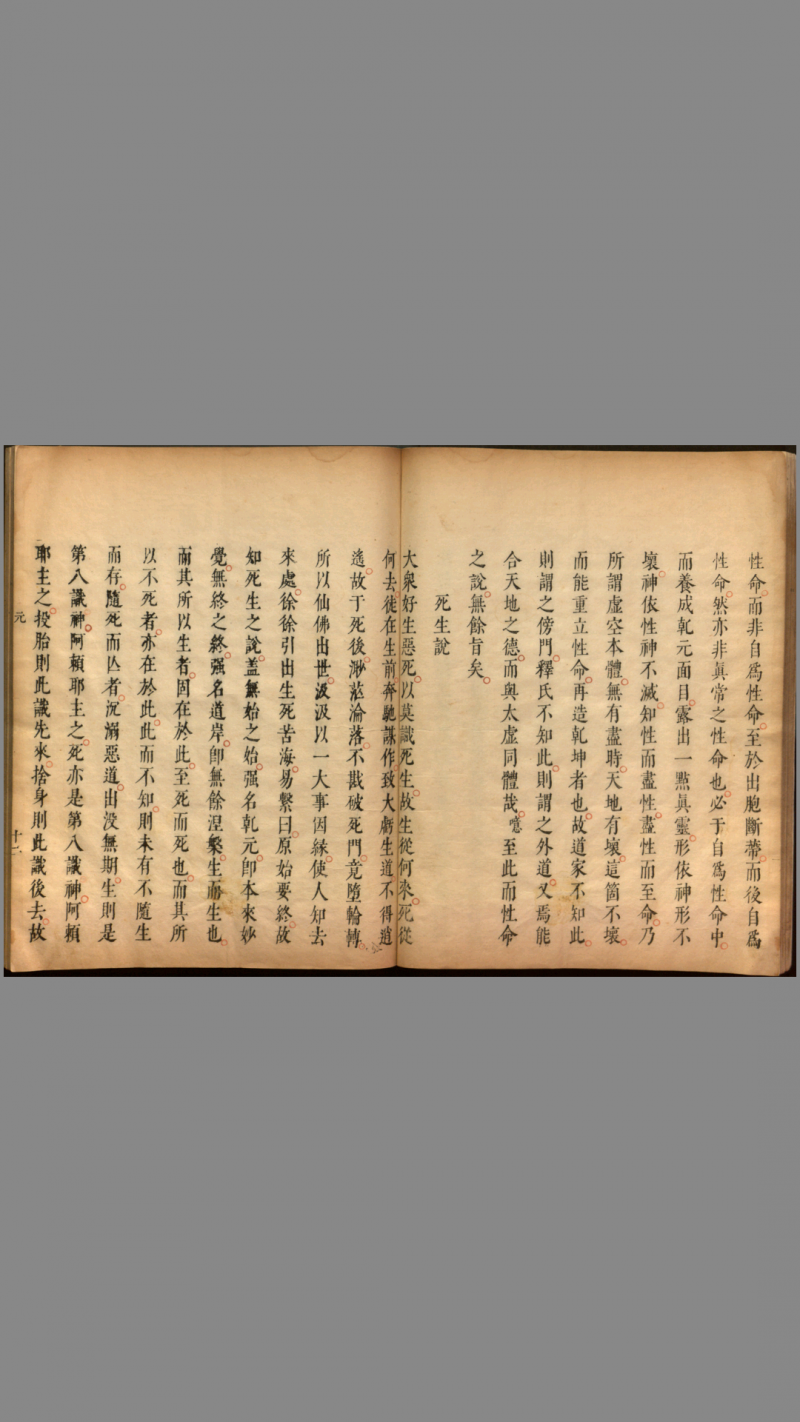 性命而非自爲性命至於出胞斷蒂而後自爲
性命然亦非眞常之性命也必于自爲性命中
而養成乾元面目露出一點眞靈形依神形不
壞神依性神不滅知性而盡性盡性而至命乃
所謂虛空本體無有盡時天地有壞這箇不壞
而能重立性命再造乾坤者也故道家不知此
則謂之傍門釋氏不知此則謂之外道又焉能
合天地之德而與太虛同體哉噫至此而性命
之說無餘旨矣
死生說
大衆好生惡死以莫識死生故生從何來死從
何去徒在生前奔馳謀作致大虧生道不得逍
遙故于死後渺茫淪落不戡破死門竟墮輪轉
所以仙佛出世汲汲以一大事因緣使人知去
來處徐徐引出生死苦海易繫曰原始要終故
知死生之說蓋無始之始强名乾元卽本來妙
覺無終之終强名道岸卽無餘涅槃生而生也
而其所以生者固在於此至死而死也而其所
以不死者亦在於此此而不知則未有不隨生
而存隨死而亾者沉溺惡道出没無期生則是
第八識神阿賴耶主之死亦是第八識神阿賴
耶主之投胎則此識先來捨身則此識後去故
元
十二